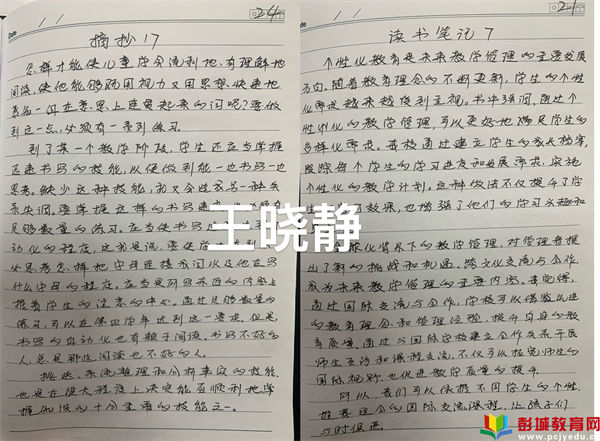 24
摘抄17
怎样才能使儿童学会流利地、有理解地
阅读,使他能够既用视力又用思想快速地
表示一些在意思上连贯起来的词呢?要做
到这一点,必须有一系列练习。
到了某一个教学阶段,学生还应当掌握
迅速书写的技能,以便做到能一边书写一边
思考。缺少这种技能,就又会造成另一种关
系失调。要掌握这样的书写速度,
足够数量的练习。应当使书写
动化的程度,这就是说,要使学生
必思考怎样把字母连接成词以及他在写
什么字母的程度。应当是所写东西的内容占
据着学生的注意的中心。通过足够数量的
练习,可以在第四学年达到这一要求。但是,
书写的自动化也有赖于阅读。书写不好的
人,总是那些阅读也不好的人。
挑选、系统整理和分析事实的技能,
也是在很大程度上决定能否顺利地掌
握知识的十分重要的技能之一。
21
读书笔记7
个性化教育是未来教学管理的重要发展
方向。随着教育理念的不断更新,学生的个性
化需求越来越受到重视。书中强调,通过个
性化的教学管理,可以更好地满足学生的
多样化需求。学校通过建立学生的成长档案,
跟踪每个学生的学习进度和发展需求,实施
个性化的教学计划。这种做法不仅提升了学
效果,也增强了他们的学习兴趣和
球化背景下的教学管理,对管理者提
出了新的挑战和机遇。跨文化交流与合作,
成为未来教学管理的重要内容。我觉得,
通过国际交流与合作,学校可以借鉴先进
的教育理念和管理经验,提升自身的教
育质量。通过与国际学校建立合作关系开展
师生互访和课程交流,不仅可以拓宽师生的
国际视野,也促进教学质量的提升。
所以,我们可以依据不同学生的个性,
推荐适合的国际交流课程,让孩子们
与时俱进。
王晓静
彭城教育网
www.pcjyedu.com